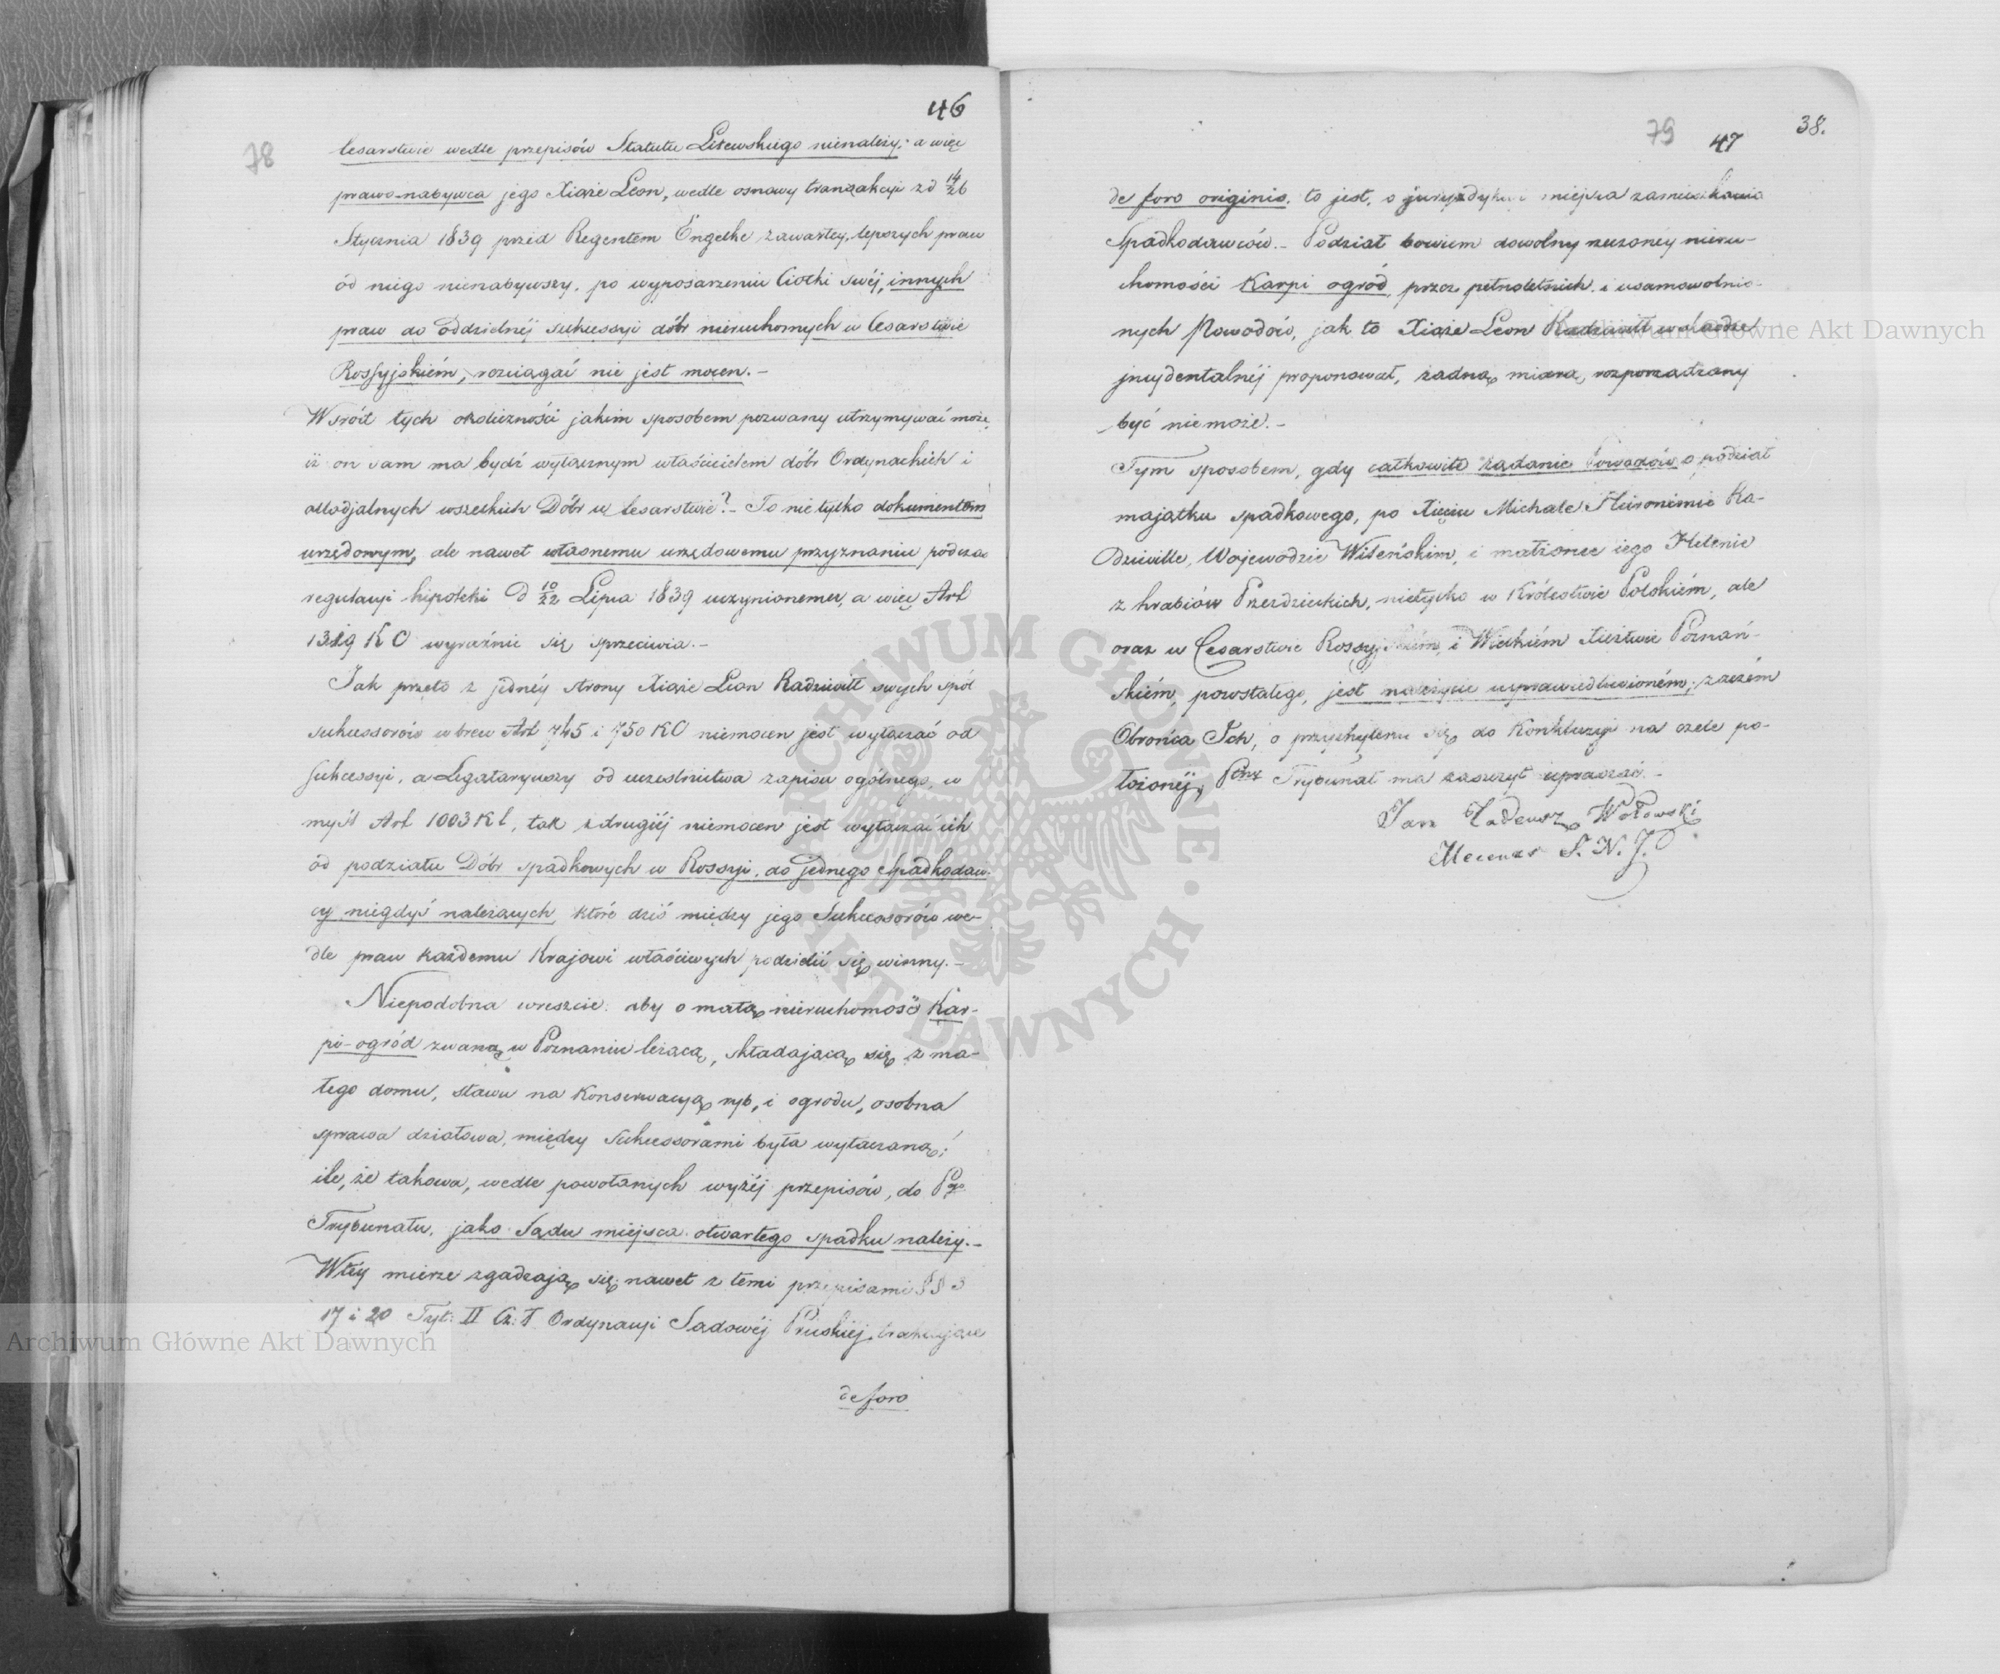 46
78
Cesarstwie wedle przepisów Statutu Litewskiego nienależy; a więc
prawo-nabywca jego Xiąże Leon, wedle osnowy tranzakcyi zd 14/26
Stycznia 1839 przed Regentem Engelke zawartey, lepszych praw
od niego nienabywszy, po wyposarzeniu Ciotki swéj, innych
praw do oddzielnéj sukcessyi dóbr nieruchomych w Cesarstwie
Rossyjskiém, rozciągać nie jest mocen.–
Wśród tych okoliczności jakim sposobem pozwany utrzymywać może,
iż on sam ma bydź wyłącznym właścicielem dóbr Ordynackich i
allodjalnych wszelkich Dóbr w Cesarstwie?– To nie tylko dokumentom
urzędowym, ale nawet własnemu urzędowemu przyznaniu podczas
regulacyi hipoteki d 10/22 Lipca 1839 uczynionemu, a więc Art
1319 KC wyraźnie się sprzeciwia.–
Jak przeto z jednéy strony Xiąże Leon Radziwiłł swych spół
sukcessorów wbrew Art 745 i 750 KC niemocen jest wyłączać od
Sukcessyi, a Legataryuszy od uczestnictwa zapisu ogólnego, w
myśl Art 1003 KC, tak z drugiéj niemocen jest wyłączać ich
od podziału Dóbr spadkowych w Rossyi, do jednego Spadkodaw-
cy niegdyś należących, które dziś między jego Sukcessorów we-
dle praw każdemu Krajowi właściwych podzielić się winny.–
Niepodobna wreszcie: aby o małą nieruchomość Kar-
pi-ogród zwaną w Poznaniu leżącą, składającą się z ma-
łego domu, stawu na konserwacyą ryb, i ogrodu, osobna
sprawa działowa, między Sukcessorami była wytaczaną;
ile, że takowa, wedle powołanych wyżéj przepisów, do Pgo
Trybunału, jako Sądu miejsca otwartego spadku należy.–
Wtéy mierze zgadzają się nawet z temi przepisami §§ 3
17 i 20 Tyt: II Cz: I Ordynacyi Sądowéj Pruskiéj, traktujące
de foro
79
47
38.
de foro originis, to jest, o juryzdykcyi miejsca zamieszkania
Spadkodawców.– Podział bowiem dowolny rzeczonéy nieru-
chomości Karpi ogród, przez pełnoletnich i usamowolnio-
nych Powodów, jak to Xiąże Leon Radziwiłł w skardze
incydentalnéj proponował, żadną miarą, rozporządzany
być niemoże.–
Tym sposobem, gdy całkowite żądanie Powodów o podział
majątku spadkowego, po Xięciu Michale Hieronimie Ra-
dziwille, Wojewodzie Wileńskim, i małżonce iego Helenie
z hrabiów Przezdzieckich, nietylko w Królestwie Polskiém, ale
oraz w Cesarstwie Rossyjskiém, i Wielkiém Xięztwie Poznań-
skiém, powstałego, jest należycie usprawiedliwioném; zaczém
Obrońca Ich, o przychylenie się do Konkluzyi na czele po-
łożonéj, Prześ. Trybunał ma zaszczyt upraszać.–
Jan Tadeusz Wołowski
Mecenas S. N. J.
Archiwum Główne Akt Dawnych
Archiwum Główne Akt Dawnych
ARCHIWUM GŁÓWNE
AKT DAWNYCH